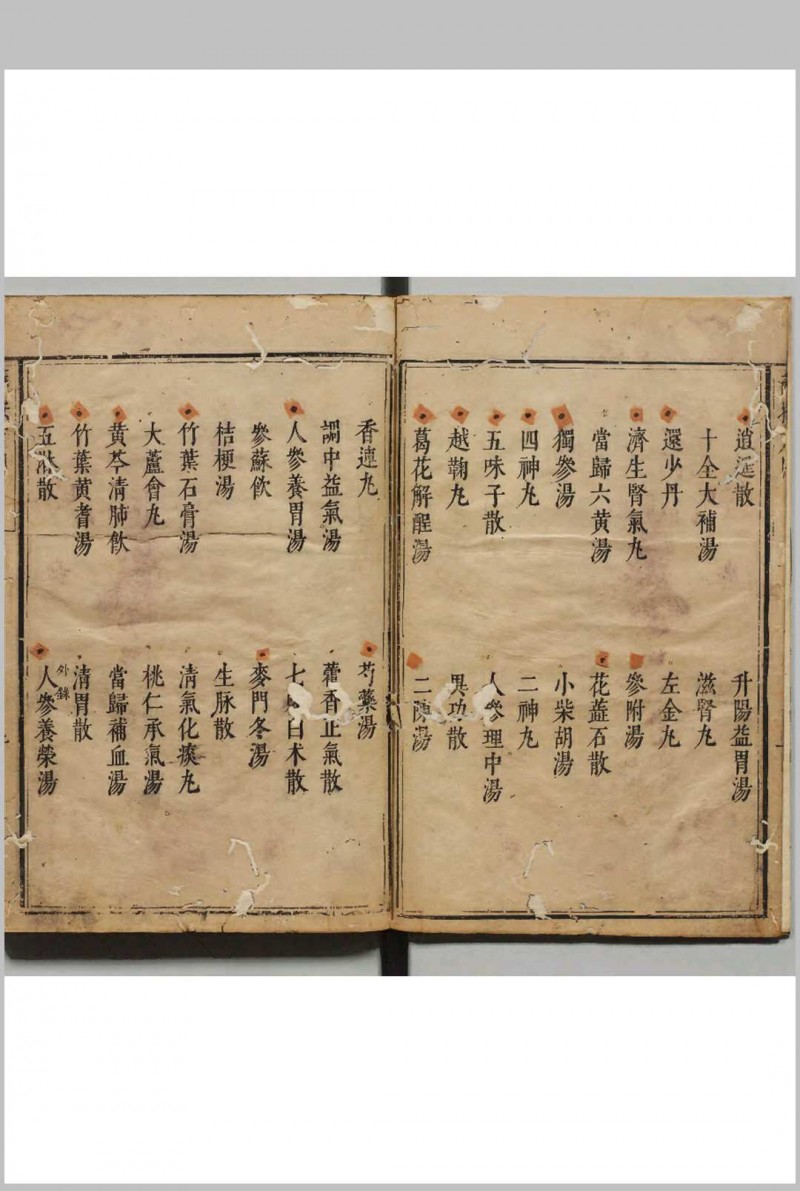 逍遥散
升陽益胃湯
十全大補湯
滋腎丸
還少丹
左金丸
濟生腎氣丸
參附湯
當歸六黃湯
花蕋石散
獨參湯
小柴胡湯
四神丸
二神丸
五味子散
人參理中湯
越鞠丸
異功散
葛花解酲湯
二陳湯
香連丸
芍藥湯
調中益氣湯
藿香正氣散
人參養胃湯
七 白朮散
參蘇飲
麥門冬湯
桔梗湯
生脉散
竹葉石膏湯
清氣化痰丸
大蘆會丸
桃仁承氣湯
黃芩清肺飲
當歸補血湯
竹葉黃耆湯
清胃散
外錄
五淋散
人參養榮湯